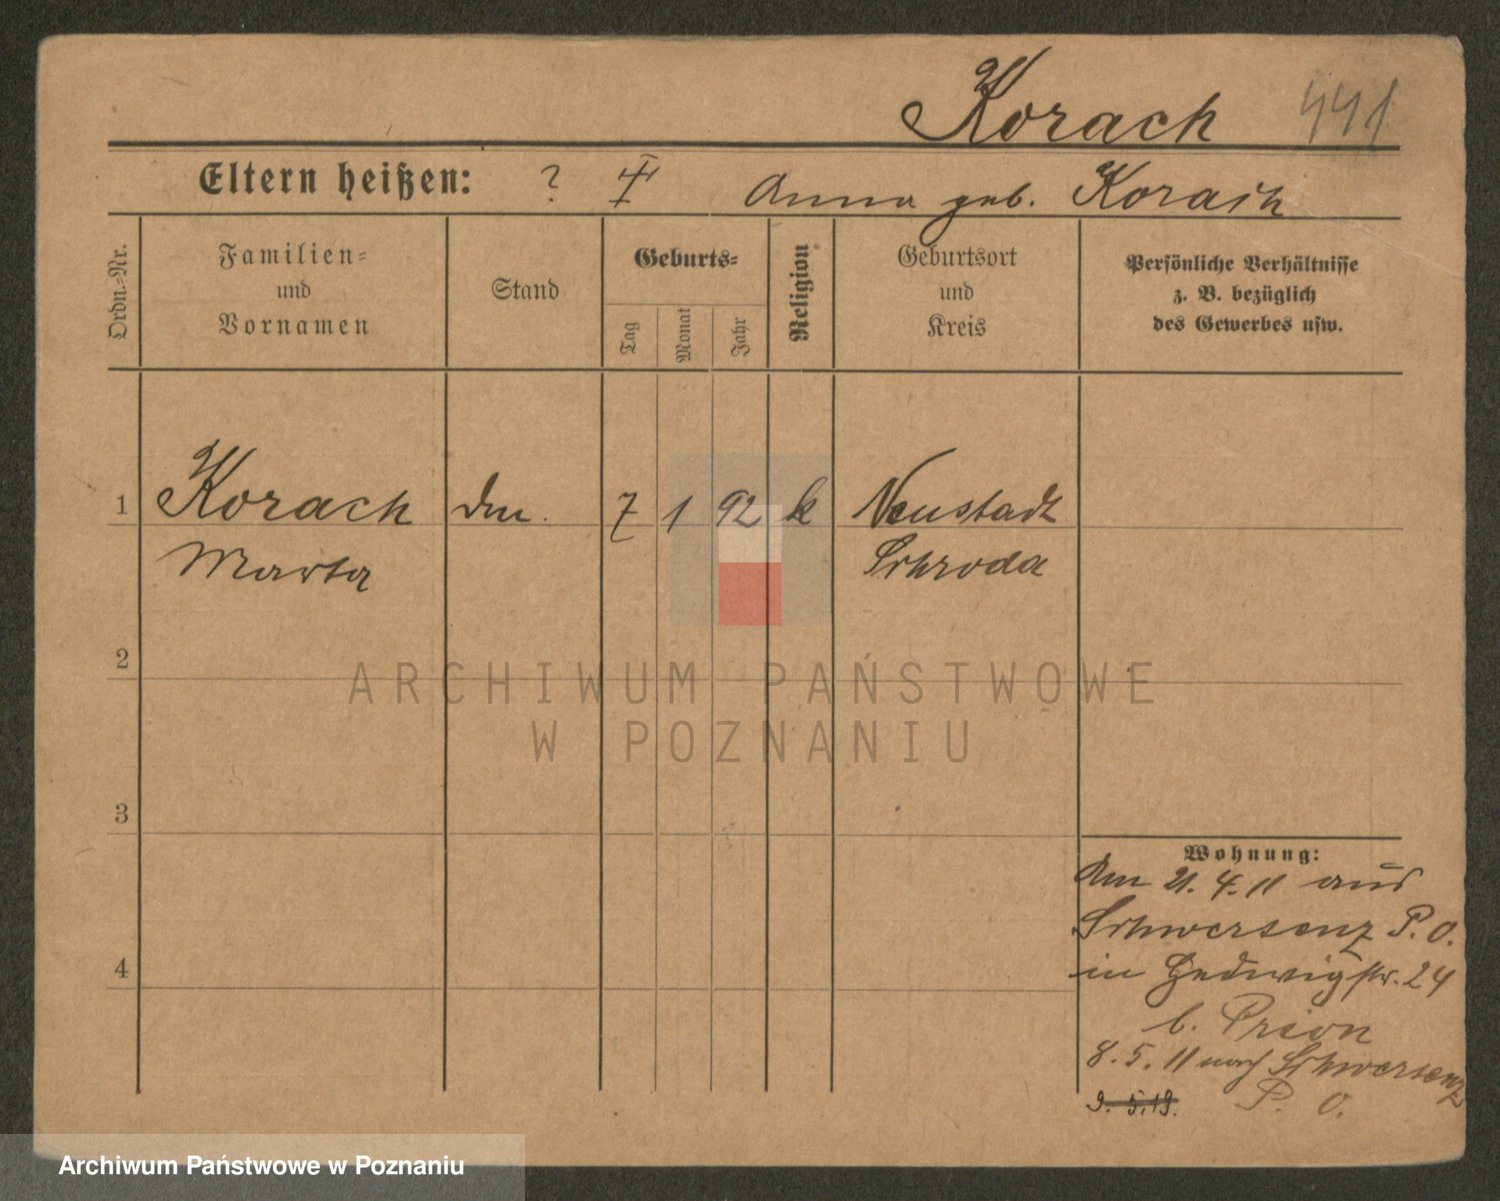 Korach 441
Eltern heißen: ? Anna geb. Korach
Ordn.=Nr.
Familien=
und
Vornamen
Stand
Geburts=
Tag
Monat
Jahr
Religion
Geburtsort
und
Kreis
Persönliche Verhältnisse
z. B. bezüglich
des Gewerbes usw.
1 Korach 7 1 92 k Neustadt
Marta Schroda
2
ARCHIWUM PAŃSTWOWE
W POZNANIU
3
4
Wohnung:
Am 21. 4. 11 aus
Schwersenz P. O.
in Hedwigstr. 24
b. Prion
8. 5. 11 nach Schwersenz
P. O.
9. 5. 19.
Archiwum Państwowe w Poznaniu